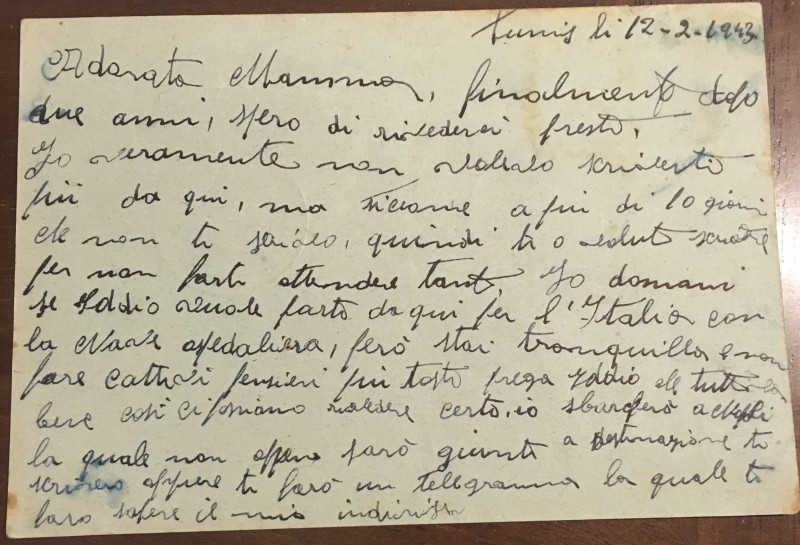 Tunis li 12-2-1943
Adorata Mamma, finalmento dopo
due anni, spero di rivederci presto,
Io veramente non volevo scriverti
più da qui, ma siccome a piu di 10 giorni
che non ti scrivo, quindi ti o voluto scrivere
per non farti attendere tanto. Io domani
se Iddio vuole parto da qui per l'Italia con
la Nave ospedaliera, però stai tranquilla e non
fare cattivi pensieri piu tosto prega Iddio che tutto va
bene cosi ci possiamo rivedere certo, io sbarcherò a Napoli
la quale non appena sarò giunto a destinazione ti
scrivero oppure ti farò un telegramma la quale ti
faro sapere il mio indirizzo